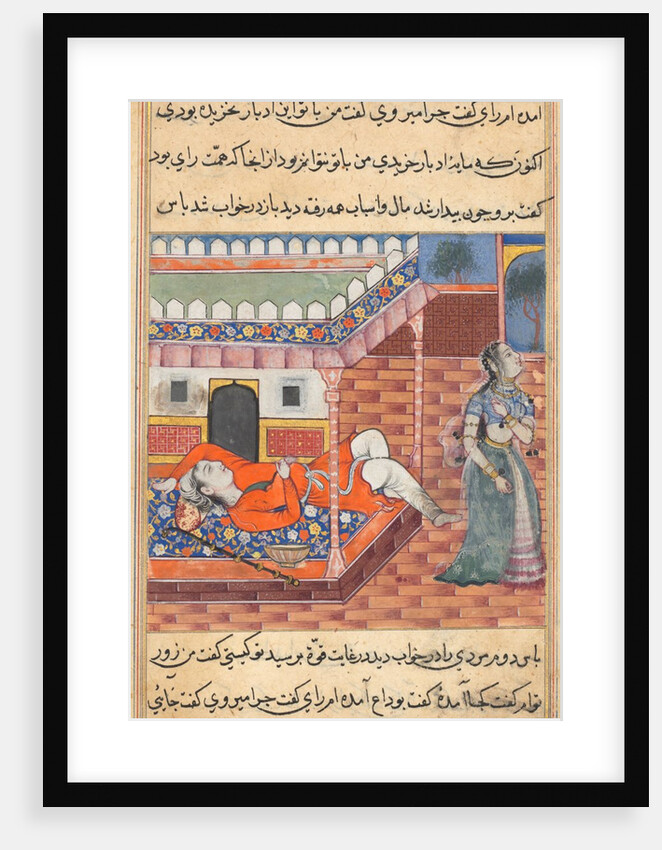 آمده ام رای گفت چرا میروی گفت من با تو این ادبار نخریده بودی
اکنون که مایهٔ ادبار خریدی من با تو نتوانم بود از انجا که همّت رای بود
گفت برو چون بیدار شد مال و اسباب همه رفته دید باز در خواب شد پاس
پاس دوم مردی را در خواب دید در غایت قوّة پرسید تو کیستی گفت من زور
توام گفت کجا آمدهٔ گفت بوداع آمده ام رای گفت چرا میروی گفت جایٔی